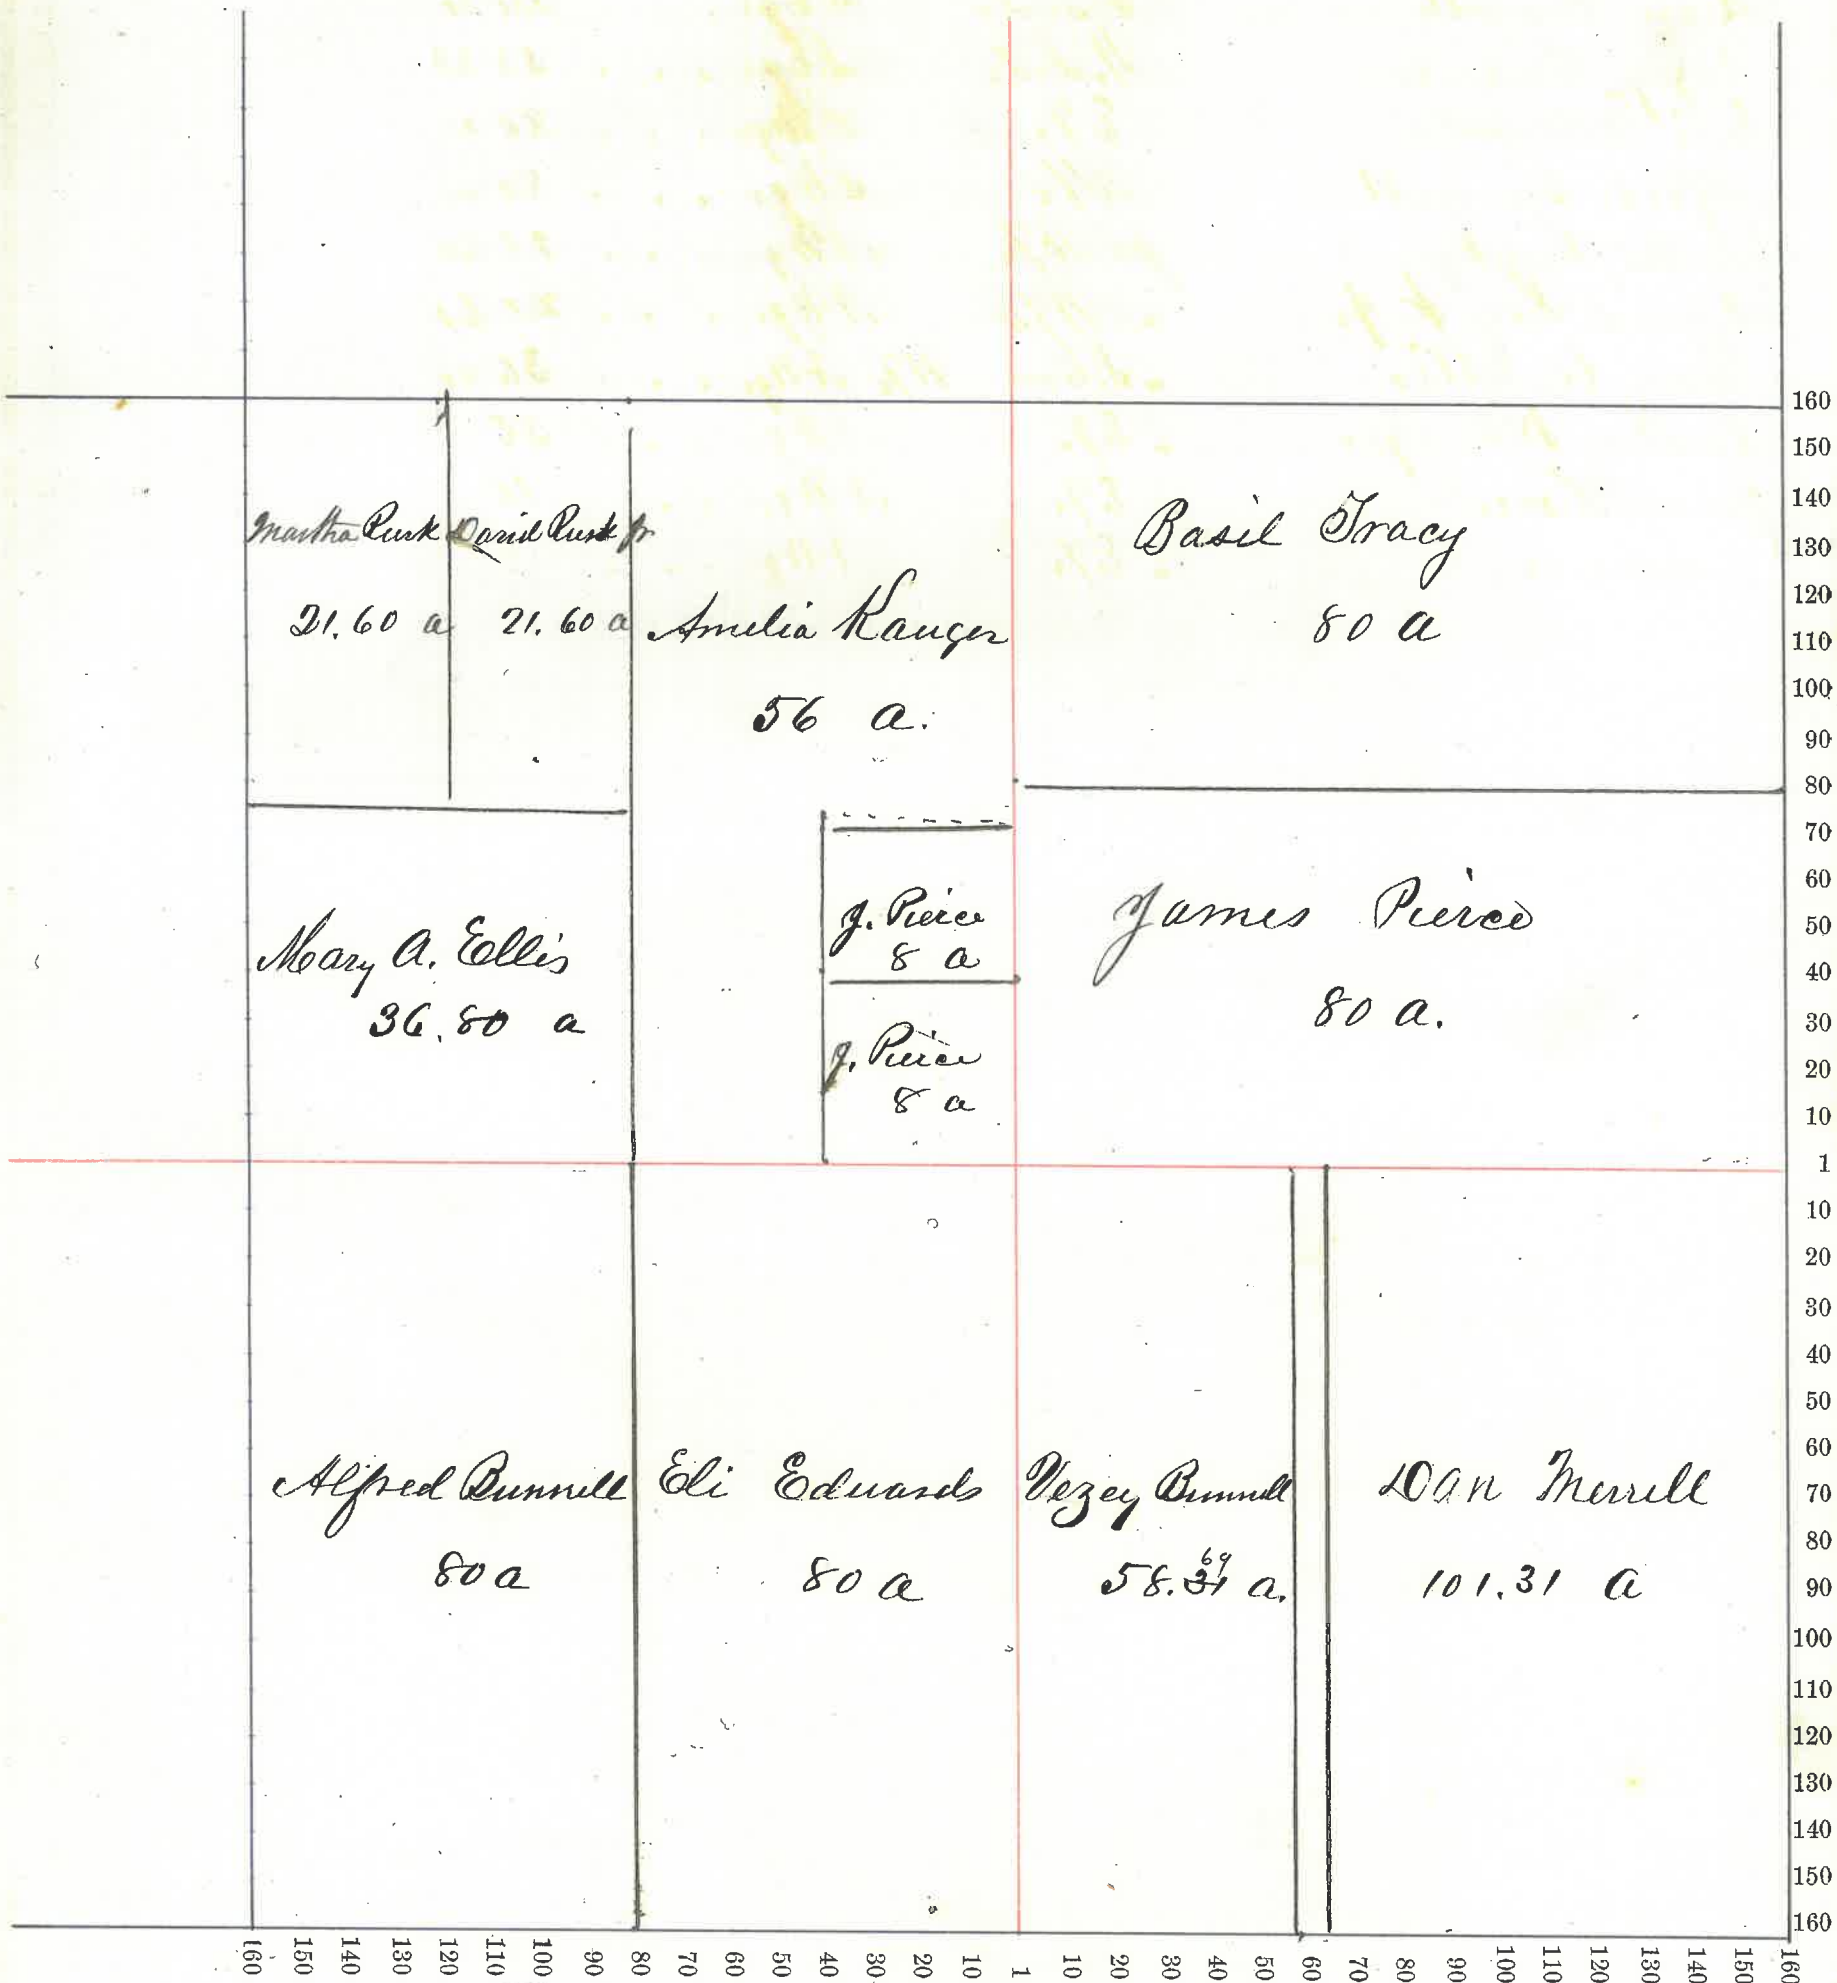 Martha Rusk
21.60 a
David Rusk Jr
21.60 a
Amelia Kauger
56 a.
Basil Tracy
80 a
Mary A. Ellis
36.80 a
J. Pierce
8 a
J. Pierce
8 a
James Pierce
80 a.
Alfred Bunnell
80 a
Eli Edwards
80 a
Vezey Bunnell
69
58.31 a.
Dan Merrell
101.31 a
160
150
140
130
120
110
100
90
80
70
60
50
40
30
20
10
1
10
20
30
40
50
60
70
80
90
100
110
120
130
140
150
160
160 150 140 130 120 110 100 90 80 70 60 50 40 30 20 10 1 10 20 30 40 50 60 70 80 90 100 110 120 130 140 150 160